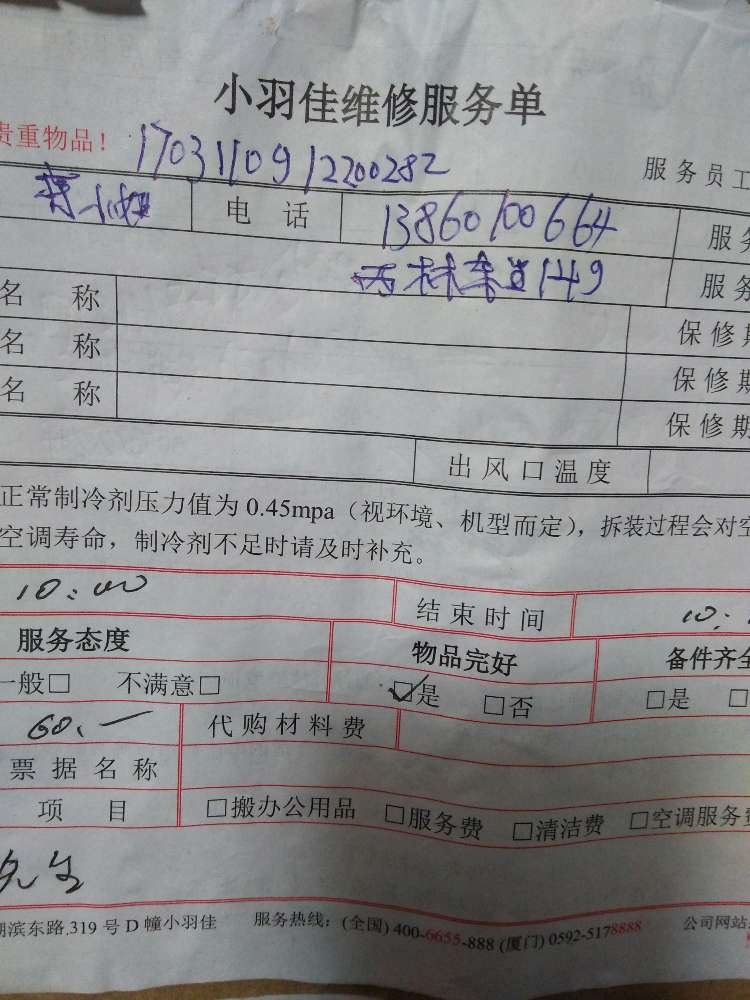 小羽佳维修服务单
贵重物品！ 17031109 12200282 服务员工
小姐 电话 13860100664 服务
西林东道149 服务
名称 保修期
名称 保修期
名称 保修期
出风口温度
正常制冷剂压力值为 0.45mpa（视环境、机型而定），拆装过程会对空
空调寿命，制冷剂不足时请及时补充。
10:00 结束时间 10:
服务态度 物品完好 备件齐全
一般□ 不满意□ ☑是 □否 □是 □
60.— 代购材料费
票据名称
项目 □搬办公用品 □服务费 □清洁费 □空调服务费
先生
湖滨东路.319 号 D 幢小羽佳 服务热线：(全国) 400-6655-888 (厦门) 0592-5178888 公司网站